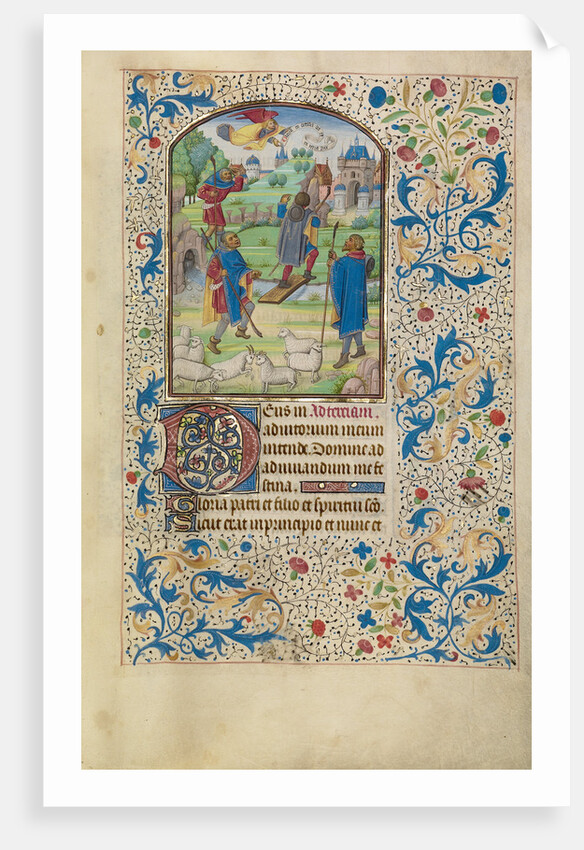 Eus in Ad terciam.
adiutorium meum
intende. Domine ad
adiuuandum me fe
stina,
Gloria patri et filio et spiritui sco
Sicut erat in principio et nunc et